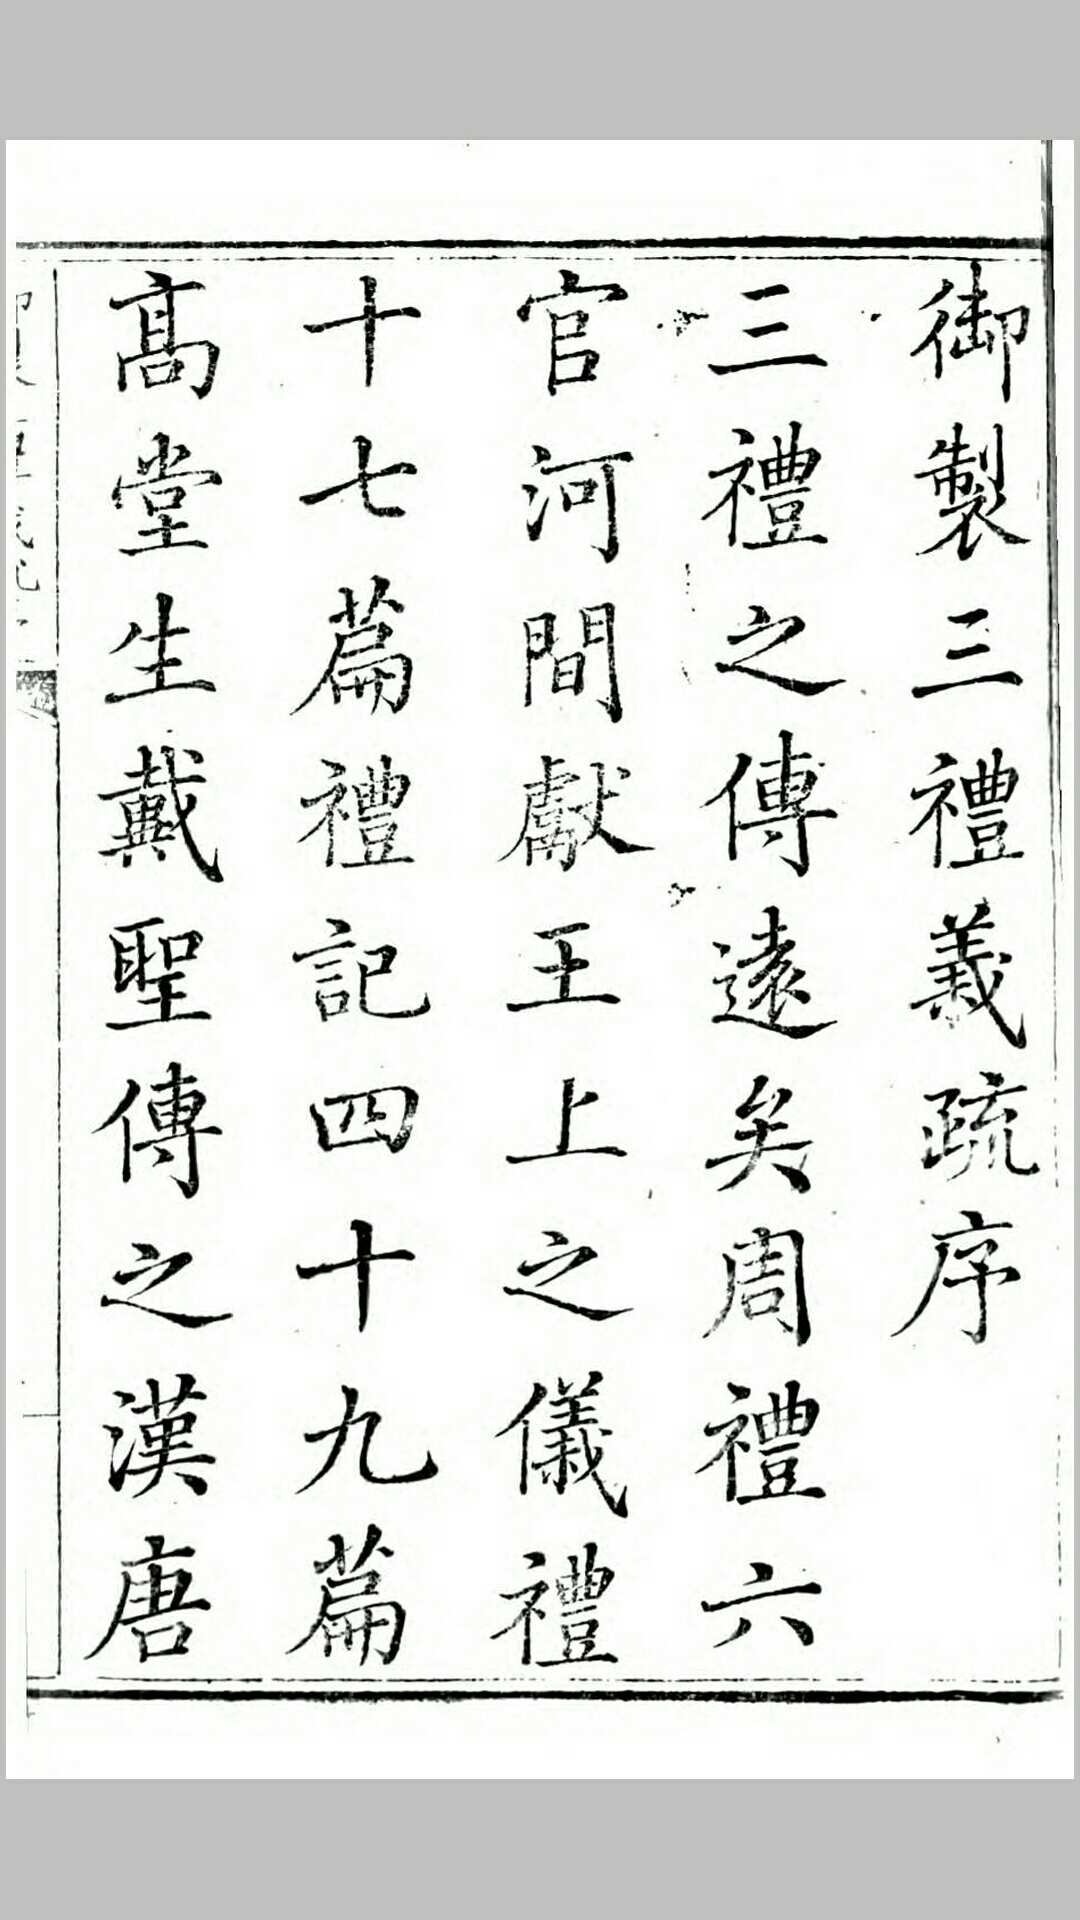 御製三禮義疏序
三禮之傳遠矣周禮六
官河間獻王上之儀禮
十七篇禮記四十九篇
髙堂生戴聖傳之漢唐